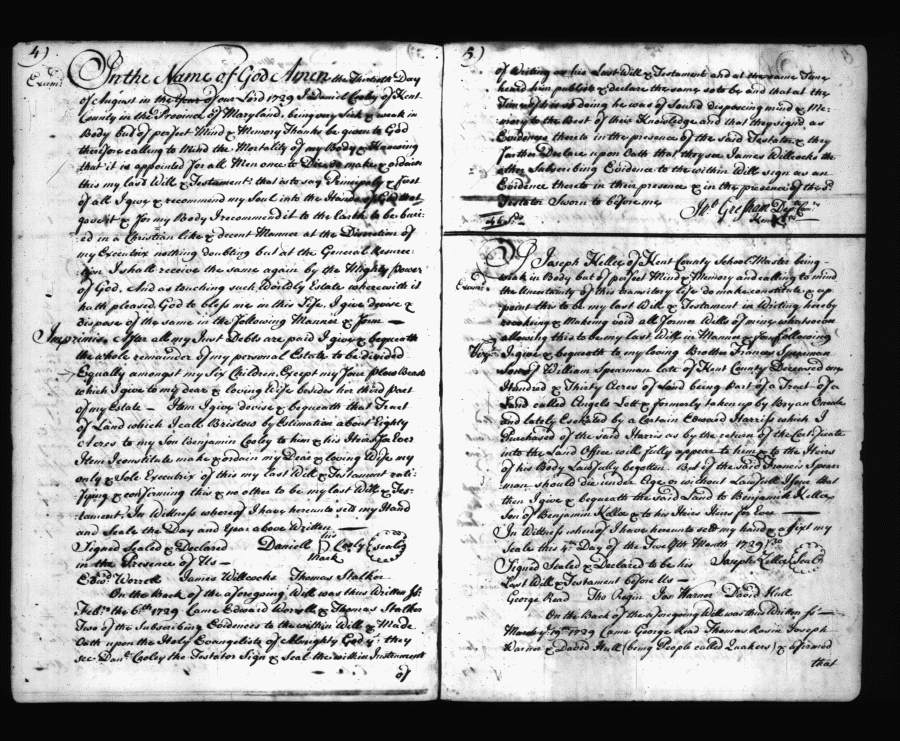 4)
Exam.d
In the Name of God Amen the Thirtieth Day
of August in the Year of our Lord 1729 I Daniel Cooley of Kent
County in the Province of Maryland, being very Sick & weak in
Body but of perfect Mind & Memory Thanks be given to God
therefore calling to Mind the Mortality of my Body & Knowing
that it is appointed for all Men once to Die do make & ordain
this my last Will & Testament: that is to say Principally & first
of all I give & recommend my Soul into the Hands of God that
gave it & for my Body I recommend it to the Earth to be buri:
ed in a Christian like & decent Manner at the Discretion of
my Executrix nothing doubting but at the General Resurrec:
tion I shall receive the same again by the Mighty Power
of God. And as touching such Worldly Estate wherewith it
hath pleased God to bless me in this Life I give devise &
dispose of the same in the following Manner & form —
Imprimis After all my Just Debts are paid I give & bequeath
the whole remainder of my personal Estate to be divided
Equally amongst my Six Children Except my four Plow Beasts
which I give to my dear & loving Wife besides her third Part
of my Estate — Item I give devise & bequeath that Tract
of Land which I call Bristow by Estimation about Eighty
Acres to my Son Benjamin Cooley to him & his Heirs for Ever
Item I constitute make & ordain my Dear & loving Wife my
only & Sole Executrix of this my last Will & Testament rati:
fying & confirming this & no other to be my last Will & Tes:
tament. In Witness whereof I have hereunto set my Hand
and Seale the Day and Year above Written —
Signed Sealed & Declared Daniell his mark Cooley Seale
in the Presence of Us —
Edw.d Worrell James Willcocks Thomas Stalker
On the Back of the aforegoing Will was thus Written
Feb.ry the 6.th 1729 Came Edward Worrell & Thomas Stalker
Two of the Subscribing Evidences to the within Will & Made
Oath upon the Holy Evangelists of Almighty God y.t they
see Dan.l Cooley the Testator Sign & Seal the within Instrument
of
5)
of Writing as his Last Will & Testament and at the same Time
heard him publish & declare the same so to be and that at the
Time of his so doing he was of Sound disposing mind & Me:
mory to the Best of their Knowledge and that they signd as
Evidence thereto in the presence of the said Testator & they
further Declare upon Oath that they see James Willcocks the
other Subscribing Evidence to the within Will sign as an
Evidence thereto in their presence & in the presence of the s.d
Testator Sworn to before me Jn.o Gresham Dep.ty Com.ry
Kent
Exam.d
I Joseph Keller of Kent County School Master being
weak in Body but of perfect Mind & Memory and calling to mind
the Uncertainty of this transitory Life do make constitute & ap
point this to be my last Will & Testament in Writing hereby
revoking & Making void all former Wills of mine whatsoever
allowing this to be my Last Will in Manner & form following
I give & bequeath to my loving Brother Francis Spearman
Son of William Spearman late of Kent County Deceased one
Hundred & Thirty Acres of Land being part of a Tract of a
Land called Angels Lott & formerly taken up by Bryan
and lately Escheated by a Certain Edward Harriss which I
Purchased of the said Harriss as by the return of the Certificate
into the Land Office will fully appear to him & to the Heirs
of his Body Lawfully begotten. But if the said Francis Spear
man should die under Age or without Lawfull Issue that
then I give & bequeath the Said Land to Benjamin Keller
Son of Benjamin Keller & to his Heirs Heirs for Ever —
In Witness whereof I have hereunto sett my hand & fixt my
Seale this 4.th Day of the Twelfth Month 1729
Signed Sealed & Declared to be his Joseph Keller Seal
Last Will & Testament before Us —
George Read Tho Jos Warner David Hull
On the Back of the aforegoing Will was thus Written
March y.e 19.th 1729 Came George Read Thomas Rasin Joseph
Warner & David Hull (being People called Quakers) & affirmed
that